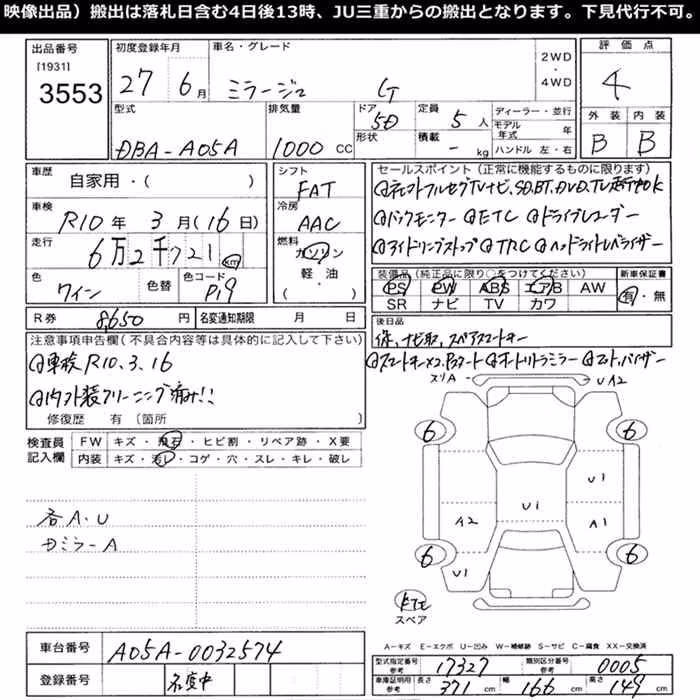 映像出品）搬出は落札日含む4日後13時、JU三重からの搬出となります。下見代行不可。
出品番号
[1931]
3553
初度登録年月
27年 6月
車名・グレード
ミラージュ G
2WD
・
4WD
評価点
4
型式
DBA-A05A
排気量
1000 CC
ドア
5D
形状
定員
5人
積載
- kg
ディーラー・並行
モデル年式 年
ハンドル 左・右
外装 内装
B B
車歴
自家用・( )
車検
R10年 3月(16日)
走行
6万2千721 km
色
ワイン
色替
色コード
P19
シフト
FAT
冷房
AAC
燃料
ガソリン
軽・油
( )
セールスポイント（正常に機能するものに限ります）
バックモニター ETC ドライブレコーダー
アイドリングストップ TRC ヘッドライトレベライザー
装備品（純正品に限り○をつけてください）
PS PW ABS エアB AW
SR ナビ TV カワ
新車保証書
有・無
R券 8,650円
名変通知期限 月 日
後日品
保、ナビ取、スペアスマートキー
スマートキー×2
オートリトラミラー
注意事項申告欄（不具合内容等は具体的に記入して下さい）
車検R10.3.16
内外装クリーニング痛み!!
修復歴 有〔箇所 〕
検査員記入欄
FW キズ・飛石・ヒビ割・リペア跡・X要
内装 キズ・汚レ・コゲ・穴・スレ・キレ・破レ
各A・U
ミラーA
スリA
U A2
6 6
U1
U1
A2 A1
6 6
U1
スペア
A-キズ E-エクボ U-凹み W-補修跡 S-サビ C-腐食 XX-交換済
車台番号 A05A-0032574
登録番号 名変中
型式指定番号 参考 17327
類別区分番号 参考 0005
車庫証明用 参考 長さ 371 cm 幅 166 cm 高さ 149 cm